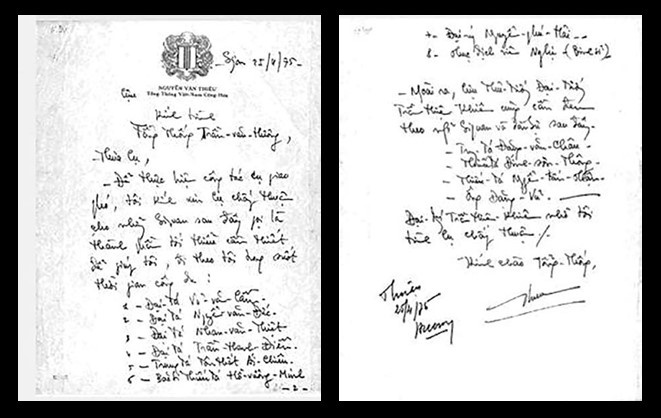 Sgon 25/4/75-
NGUYỄN VĂN THIỆU
Tổng Thống Việt-Nam Cộng Hòa
Kính trình
Tổng Thống Trần-văn-Hương,
- Thưa Cụ,
- Để thực hiện công tác Cụ giao
phó, tôi kính xin Cụ chấp thuận
cho những Sĩ quan sau đây gọi là
thành phần tối thiểu cần thiết
để giúp tôi, đi theo tôi trong suốt
thời gian công du :
1 - Đại tá Võ-văn-Cầm.
2 - Đại tá Nguyễn-văn-Đức.
3 - Đại tá Nhan-văn-Thiệt
4 - Đại tá Trần-Thanh-Điền.
5 - Trung tá Tôn Thất Ái-Chiêu.
6 - Bác sĩ Thiếu tá Hồ-vương-Minh
-2-
7 - Đại-úy Nguyễn-phú-Hải.
8 - Nghị (Binh sĩ)
- Ngoài ra, Cựu Thủ-Tướng Đại-Tướng
Trần Thiện Khiêm cũng cần đem
theo người Sĩ quan và dân sự sau đây
- Tr. Tá Đặng-văn-Châu.
- Thiếu tá Đinh-sơn-Thông.
- Thiếu-tá
- Ông Đặng-Vũ.
Đại tướng Trần Thiện Khiêm nhờ tôi
trình Cụ chấp thuận./.
Kính chào Tổng-Thống,
Thuận
25/4/75
Hương